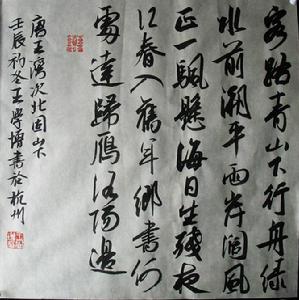 客路青山下行舟綠
水前潮平兩岸闊風
正一颿懸海日生殘夜
江春入舊年鄉書何
處達歸鴈洛陽邊
唐王灣次北固山下
壬辰初冬王學博書於杭州